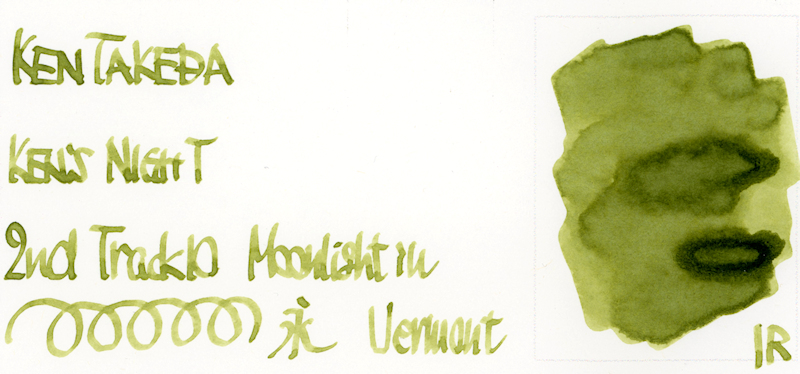 KEN TAKEDA
KEN'S NIGHT
2nd Track10 Moonlight in
永 Vermont
IR